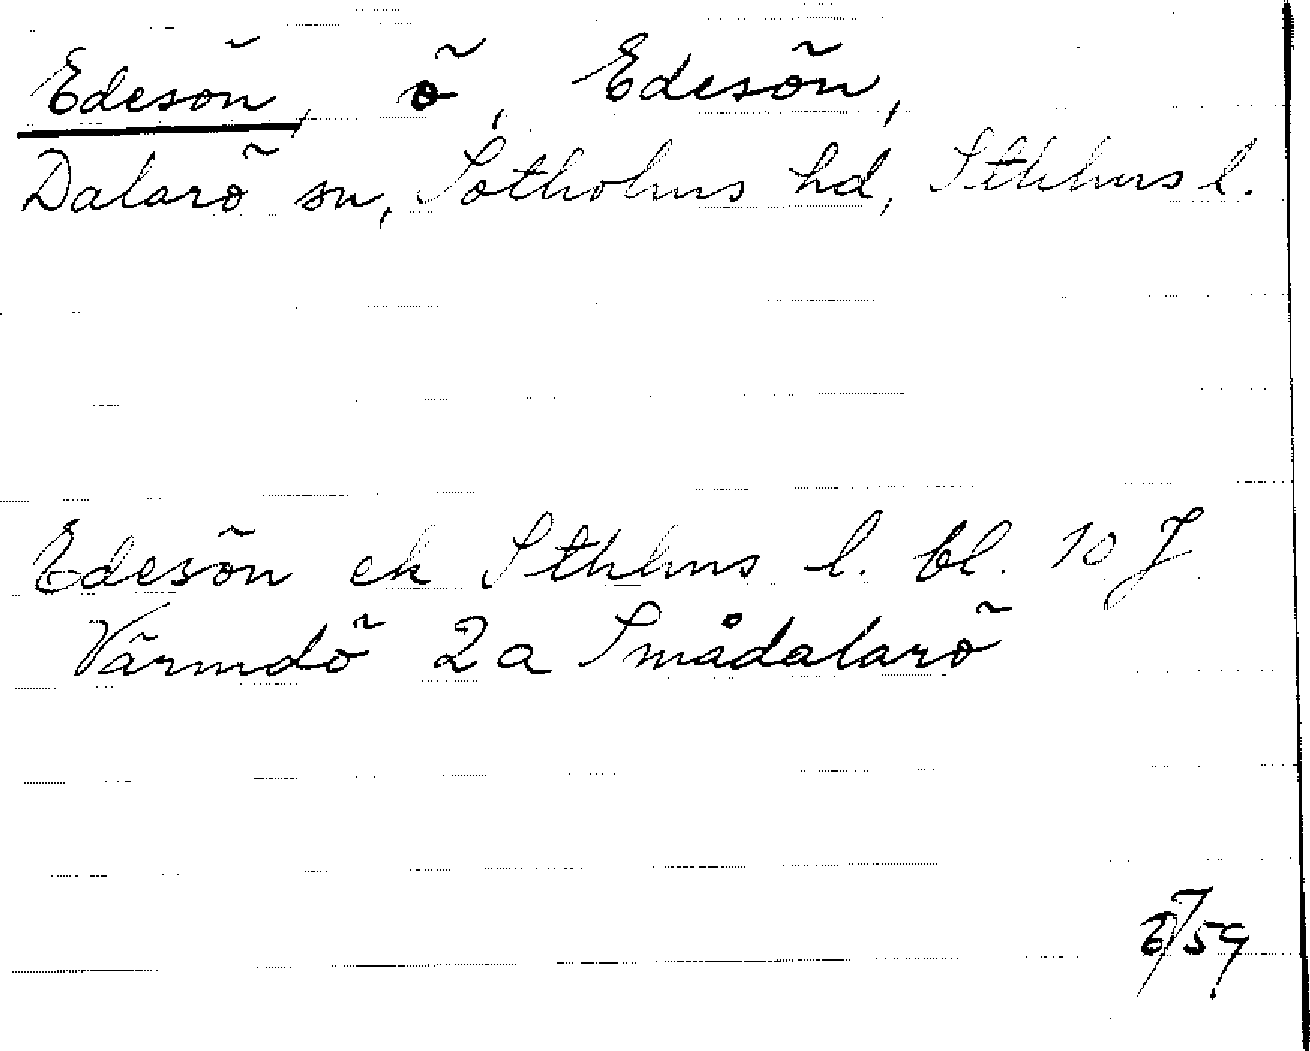 Edesön, ö, Edesön,
Dalarö sn, Sotholms hd, Sthlms l.
Edesön ek Sthlms l. bl. 10 J
Värmdö 2a Smådalarö
59